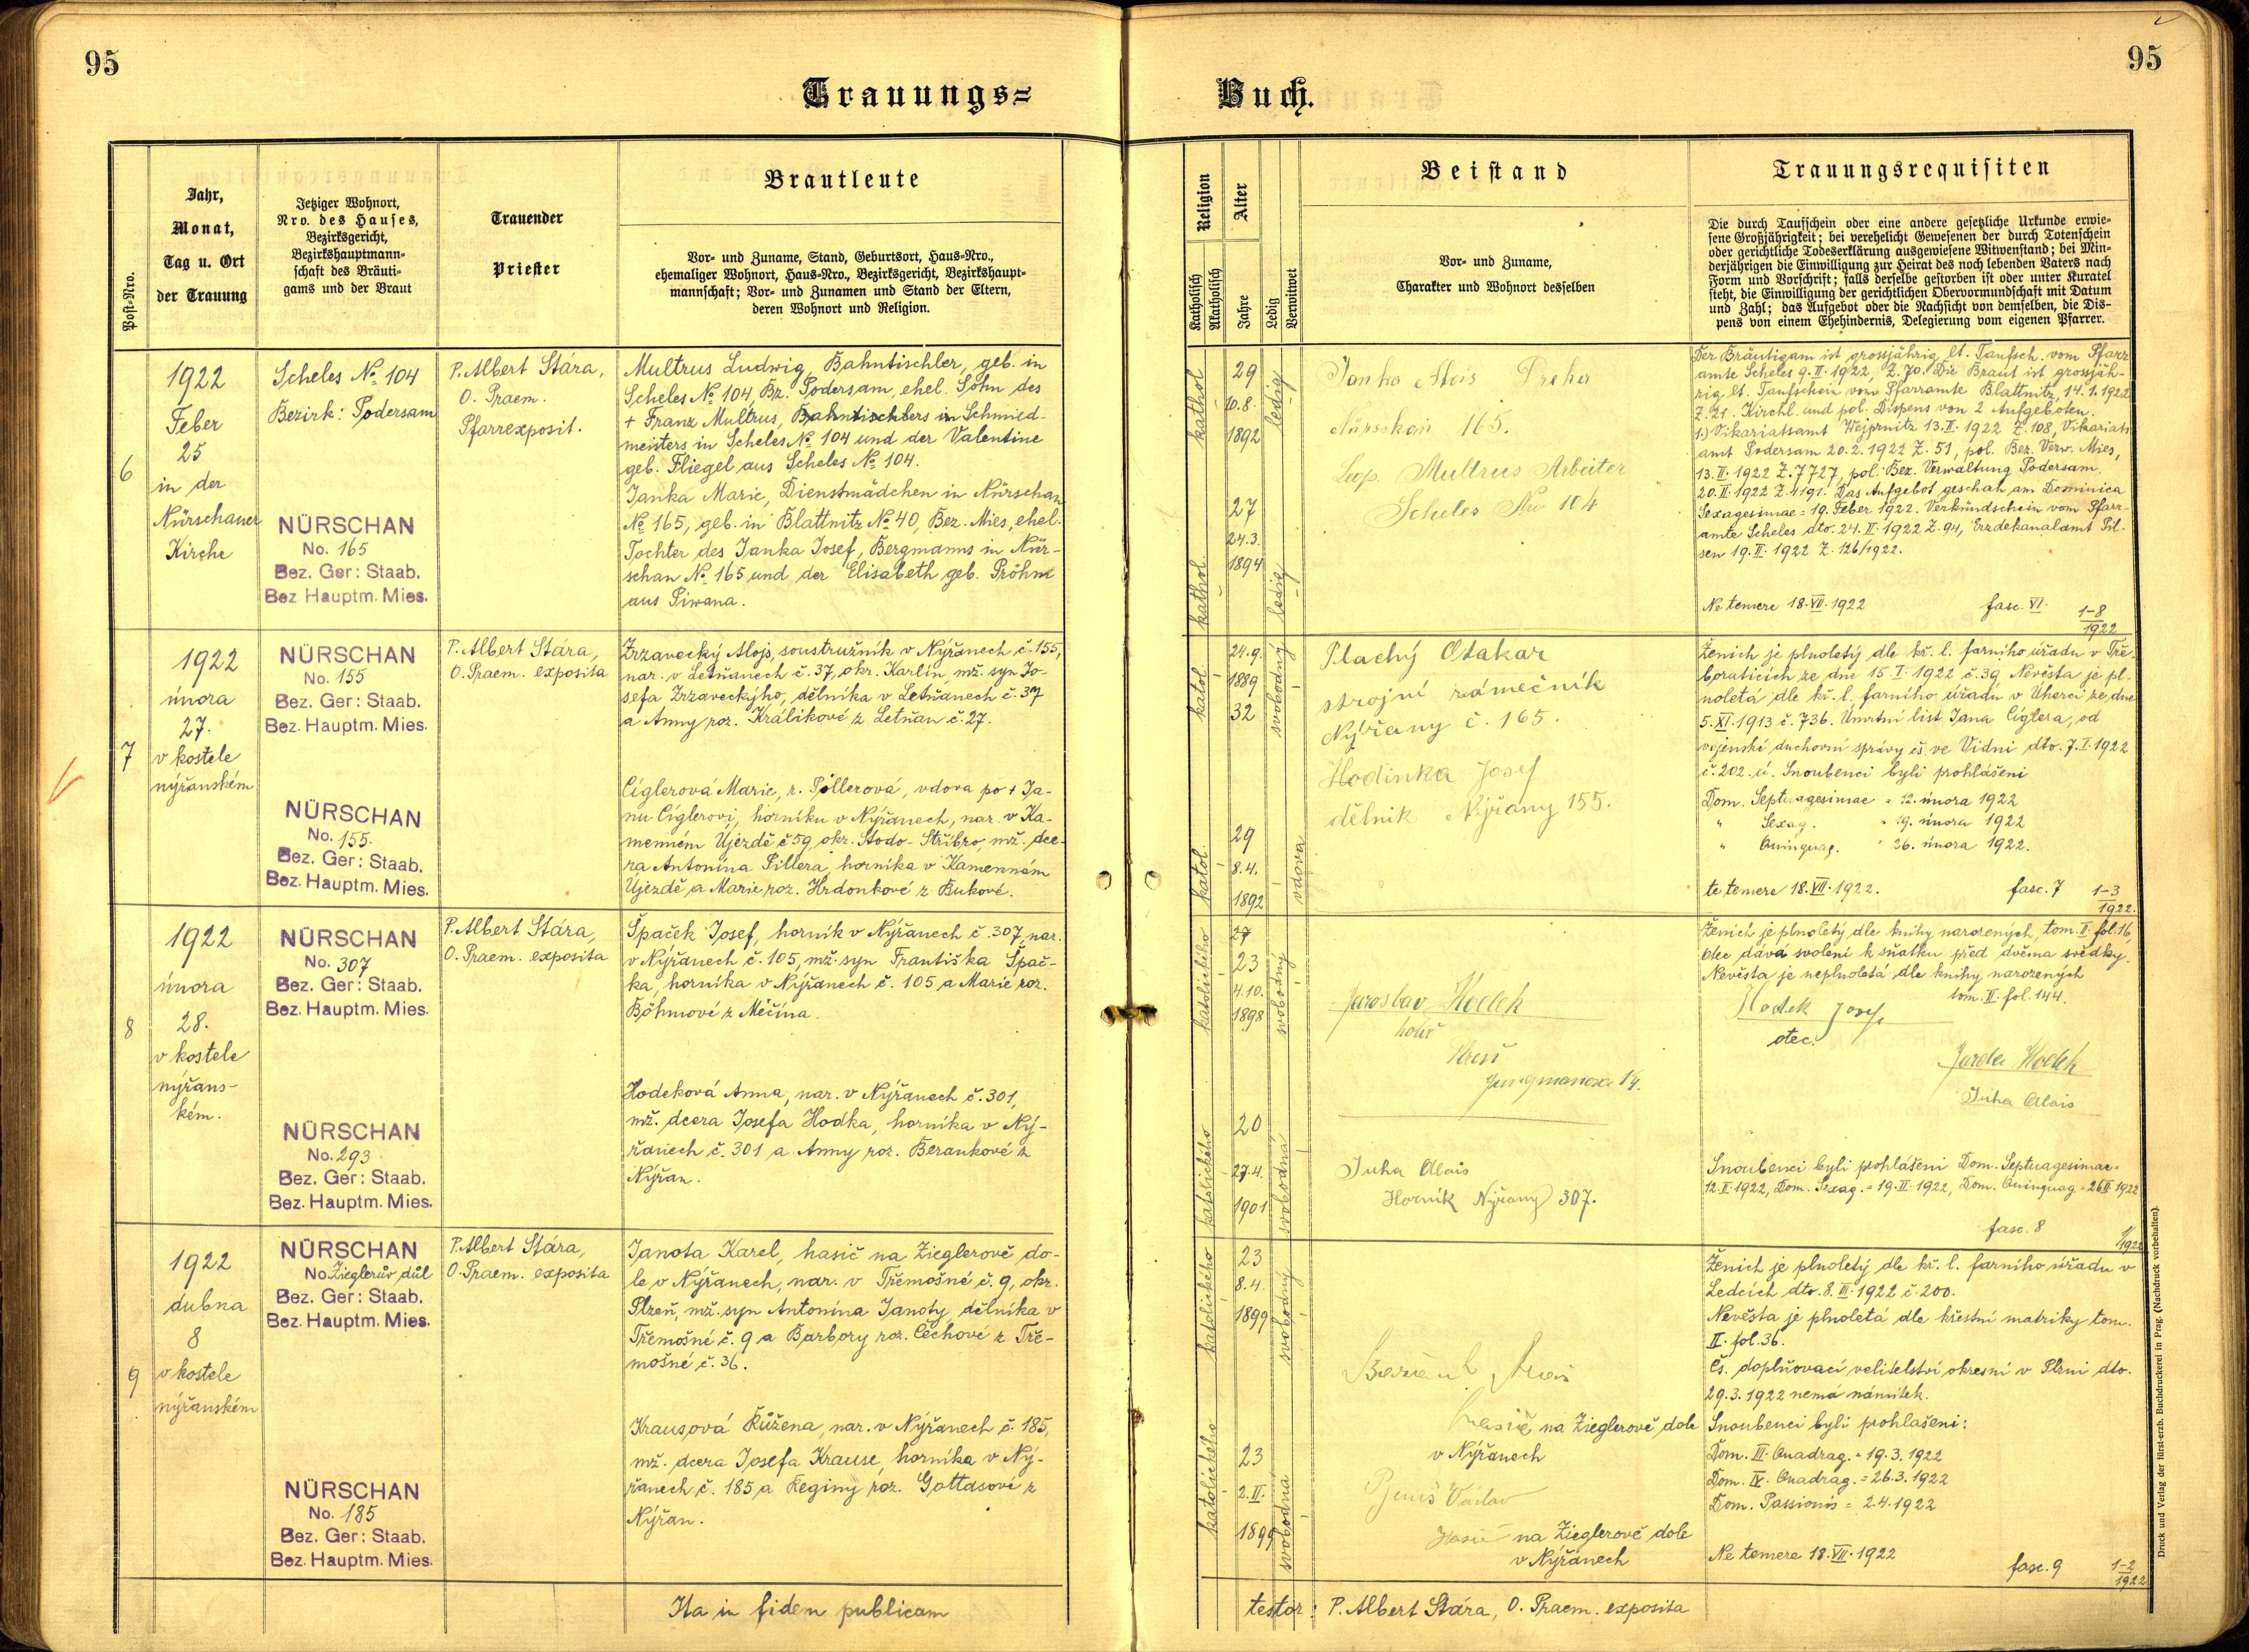 95
95
Trauungs=
Buch.
Post-Nro.
Jahr,
Monat,
Tag u. Ort
der Trauung
Jetziger Wohnort,
Nro. des Hauses,
Bezirksgericht,
Bezirkshauptmann-
schaft des Bräuti-
gams und der Braut
Trauender
Priester
Brautleute
Vor- und Zuname, Stand, Geburtsort, Haus-Nro.,
ehemaliger Wohnort, Haus-Nro., Bezirksgericht, Bezirkshaupt-
mannschaft; Vor- und Zunamen und Stand der Eltern,
deren Wohnort und Religion.
Religion
Katholisch
Akatholisch
Alter
Jahre
Ledig
Verwitwet
Beistand
Vor- und Zuname,
Charakter und Wohnort desselben
Trauungsrequisiten
Die durch Taufschein oder eine andere gesetzliche Urkunde erwie-
sene Großjährigkeit; bei verehelicht Gewesenen der durch Totenschein
oder gerichtliche Todeserklärung ausgewiesene Witwenstand; bei Min-
derjährigen die Einwilligung zur Heirat des noch lebenden Vaters nach
Form und Vorschrift; falls derselbe gestorben ist oder unter Kuratel
steht, die Einwilligung der gerichtlichen Obervormundschaft mit Datum
und Zahl; das Aufgebot oder die Nachsicht von demselben, die Dis-
pens von einem Ehehindernis, Delegierung vom eigenen Pfarrer.
6
1922
Feber
25
in der
Nürschauer
Kirche
Scheles No 104
Bezirk: Podersam
NÜRSCHAN
No. 165
Bez. Ger: Staab.
Bez Hauptm. Mies.
P. Albert Stára,
O. Praem.
Pfarrexposit.
Multrus Ludwig, Bahntischler, geb. in
Scheles No 104, Bz. Podersam, ehel. Sohn des
+ Franz Multrus, Bahntischlers in Schmied-
meisters in Scheles No 104 und der Valentine
geb. Fliegel aus Scheles No 104.
Janka Marie, Dienstmädchen in Nürschan
No 165, geb. in Blattnitz No 40, Bez. Mies, ehel.
Tochter des Janka Josef, Bergmanns in Nür-
schan No 165 und der Elisabeth geb. Pröhm
aus Piwana.
kathol.
29
10.8.
1892
ledig
kathol.
27
24.3.
1894
ledig
Janka Alois Dreher
Nürschan 165.
Leop. Multrus Arbeiter
Scheles No 104
Der Bräutigam ist grossjährig lt. Taufsch. vom Pfarr
amte Scheles 9.II.1922, Z.70. Die Braut ist grossjäh-
rig lt. Taufschein vom Pfarramte Blattnitz, 14.1.1922
Z.21. Kirchl. und pol. Dispens von 2 Aufgeboten.
1.) Vikariatsamt Wejprnitz 13.II.1922 Z.108, Vikariats
amt Podersam 20.2.1922 Z.51, pol. Bez. Verw. Mies,
13.II.1922 Z.7727, pol. Bez. Verwaltung Podersam,
20.II.1922 Z.4192. Das Aufgebot geschah am Dominica
Sexagesimae = 19. Feber 1922. Verkündschein vom Pfarr-
amte Scheles dto. 24.II.1922 Z.94, Erzdekanalamt Pil-
sen 19.II.1922 Z.126/1922.
Ne temere 18.VII.1922 fasc. VI. 1-8
1922
7
1922
února
27.
v kostele
nýřanském
NÜRSCHAN
No. 155
Bez. Ger: Staab.
Bez. Hauptm. Mies.
NÜRSCHAN
No. 155.
Bez. Ger: Staab.
Bez. Hauptm. Mies.
P. Albert Stára,
O. Praem. exposita
Zrzavecký Alojs, soustružník v Nýřanech č. 155,
nar. v Letňanech č. 37, okr. Karlín, mž. syn Jo-
sefa Zrzaveckýho, dělníka v Letňanech č. 37
a Anny roz. Králikové z Letňan č. 27.
Cíglerová Marie, r. Pillerová, vdova po + Ja-
nu Cíglerovi, horníku v Nýřanech, nar. v Ka-
menném Újezdě č 59, okr. Stodo-Stříbro, mž. dce-
ra Antonína Pillera, horníka v Kamenném
Újezdě a Marie roz. Hrdonkové z Bukové.
katol.
24.9.
1889
32
svobodný
katol.
29
8.4.
1892
vdova
Plachý Otakar
strojní zámečník
Nýřany č. 165.
Hodinka Josef
dělník Nýřany 155.
Ženich je plnoletý dle kř. l. farního úřadu v Tře-
boraticích ze dne 15.I.1922 č.39. Nevěsta je pl-
noletá dle kř. l. farního úřadu v Úherci ze dne
5.XI.1913 č. 736. Úmrtní list Jana Cíglera, od
vojenské duchovní správy čs. ve Vídni dto. 7.I.1922
č. 202. ú. Snoubenci byli prohlášeni
Dom. Septuagesimae = 12. února 1922
" Sexag. = 19. února 1922
" Quinquag. " 26. února 1922.
te temere 18.VII.1922. fasc. 7 1-3
1922.
8
1922
února
28.
v kostele
nýřans-
kém.
NÜRSCHAN
No. 307
Bez. Ger: Staab.
Bez. Hauptm. Mies.
NÜRSCHAN
No. 293
Bez. Ger: Staab.
Bez. Hauptm. Mies.
P. Albert Stára,
O. Praem. exposita
Špaček Josef, horník v Nýřanech č. 307, nar.
v Nýřanech č. 105, mž. syn Františka Špač-
ka, horníka v Nýřanech č. 105 a Marie roz.
Böhmové z Měčína.
Hodeková Anna, nar. v Nýřanech č. 301,
mž. dcera Josefa Hodka, horníka v Ný-
řanech č. 301 a Anny roz. Berankové z
Nýřan.
katolického
27
23
4.10.
1898
svobodný
katolického
20
27.4.
1901
svobodná
Jaroslav Hodek
holič
Jungmanova 14.
Juha Alois
Horník Nýřany 307.
Ženich je plnoletý dle knihy narozených, tom. II. fol. 16,
Otec dává svolení k sňatku před dvěma svědky.
Nevěsta je neplnoletá dle knihy narozených
tom. II. fol. 144.
Hodek Josef
otec.
Jarda Hodek
Juha Alois
Snoubenci byli prohlášeni Dom. Septuagesimae =
12.II.1922, Dom. Sexag. = 19.II.1922, Dom. Quinquag. = 26.II.1922
fasc. 8 1/1922
9
1922
dubna
8
v kostele
nýřanském
NÜRSCHAN
No. Zieglerův důl
Bez. Ger: Staab.
Bez. Hauptm. Mies.
NÜRSCHAN
No. 185
Bez. Ger: Staab.
Bez. Hauptm. Mies.
P. Albert Stára,
O. Praem. exposita
Janota Karel, hasič na Zieglerově do-
le v Nýřanech, nar. v Třemošné č. 9, okr.
Plzeň, mž. syn Antonína Janoty, dělníka v
Třemošné č. 9 a Barbory roz. Čechové z Tře-
mošné č. 36.
Krausová Růžena, nar. v Nýřanech č. 185,
mž. dcera Josefa Krause, horníka v Ný-
řanech č. 185 a Reginy roz. Gottasové z
Nýřan.
katolického
23
8.4.
1899
svobodný
katolického
23
2.II.
1899
svobodná
hasič na Zieglerově dole
v Nýřanech
Václav
Hasič na Zieglerově dole
v Nýřanech
Ženich je plnoletý dle kř. l. farního úřadu v
Ledcích dto. 8.III.1922 č. 200.
Nevěsta je plnoletá dle křestní matriky tom.
II. fol. 36.
Čs. doplňovací velitelství okresní v Plzni dto.
29.3.1922 nemá námitek.
Snoubenci byli prohlašeni:
Dom. III. Quadrag. = 19.3.1922
Dom. IV. Quadrag. = 26.3.1922
Dom. Passionis = 2.4.1922
Ne temere 18.VII.1922 fasc. 9 1-2
1922
Ita in fidem publicam
testor: P. Albert Stára, O. Praem. exposita
Druck und Verlag der fürst-erzb. Buchdruckerei in Prag. (Nachdruck vorbehalten).